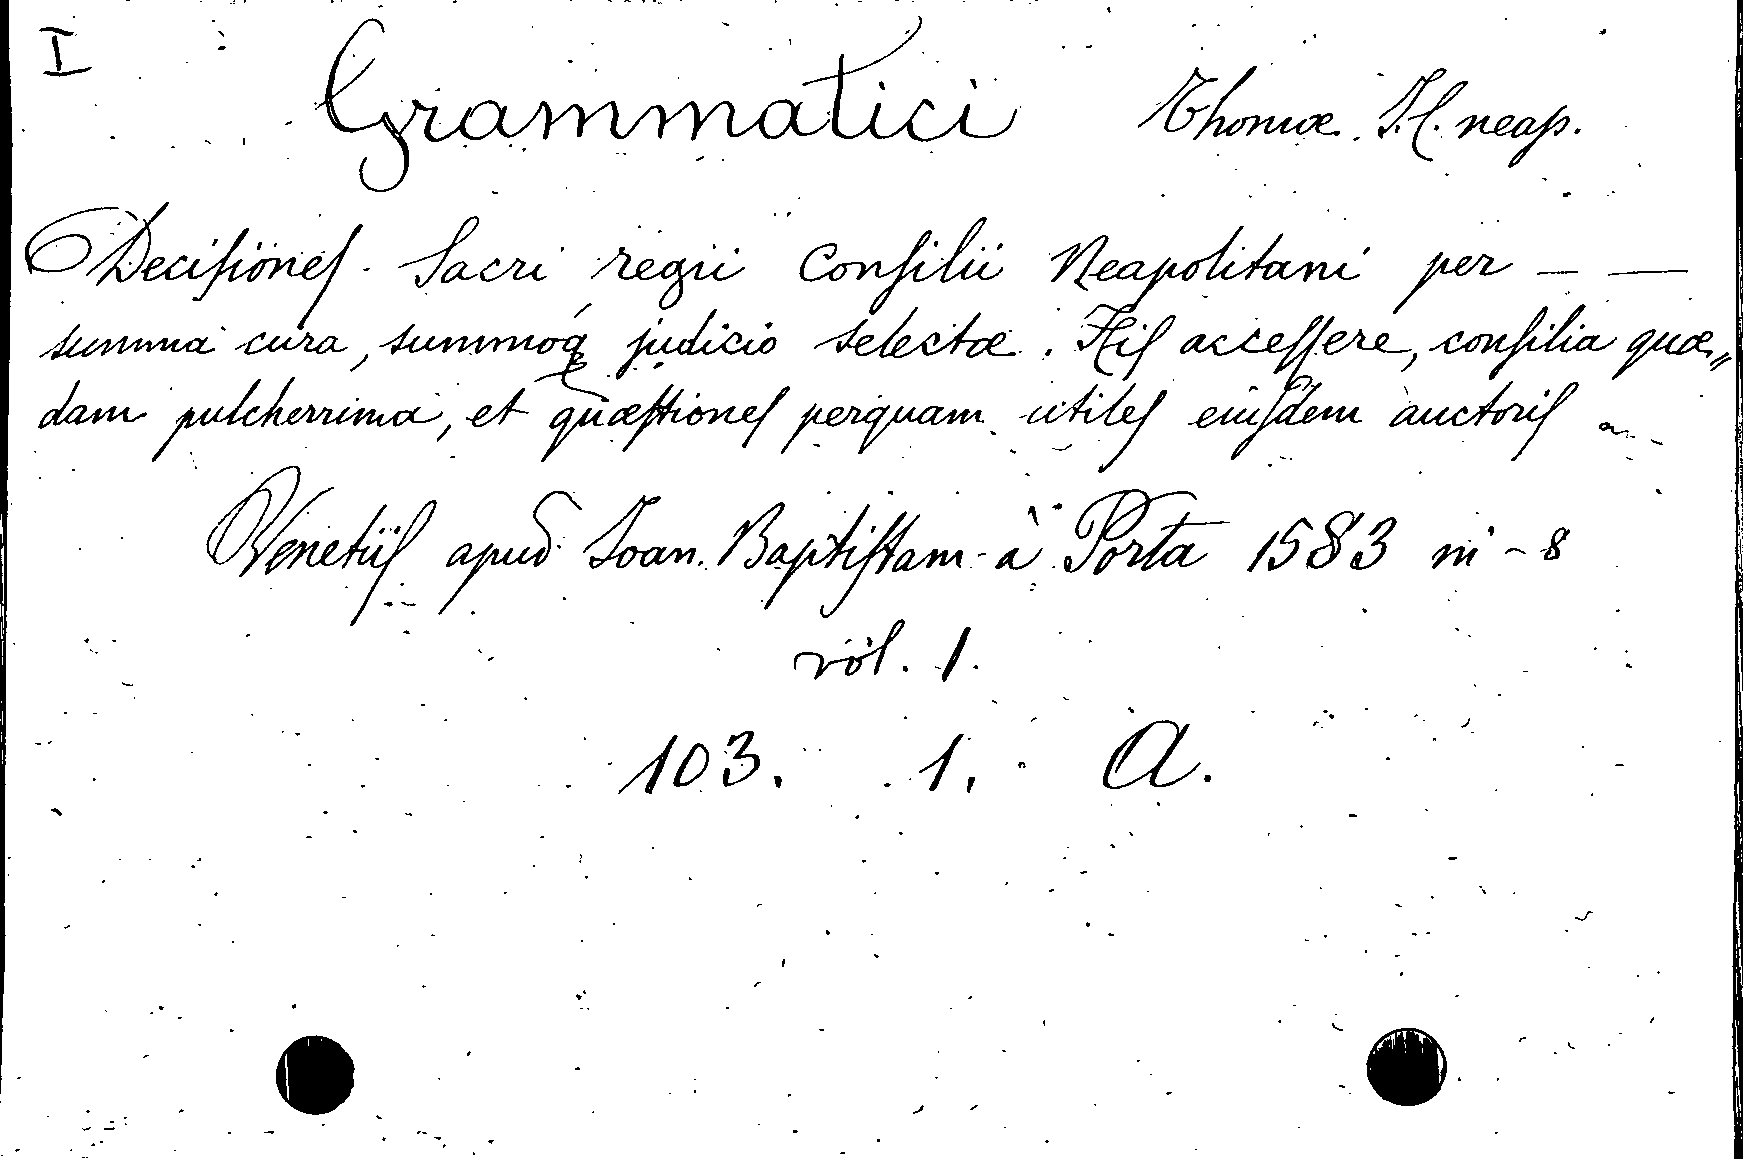 I
Grammatici Thomæ J.C. neap.
Deciſioneſ Sacri regii Conſilii Neapolitani per — —
summa cura, summoq; judicio selectæ. Hiſ acceſſere, conſilia quæ„
dam pulcherrima, et quæſtioneſ perquam utileſ eiuſdem auctoriſ
Venetiiſ apud Joan. Baptiſtam à Porta 1583 in-8
vol. 1.
103. 1. A.